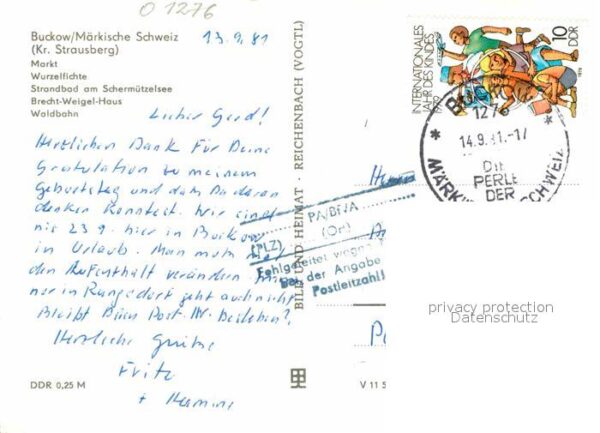 O 1276
Buckow/Märkische Schweiz
(Kr. Strausberg)
13.9.81
Markt
Wurzelfichte
Strandbad am Schermützelsee
Brecht-Weigel-Haus
Waldbahn
Lieber Gerd!
Herzlichen Dank für Deine
Gratulation zu meinem
Geburtstag und daß Du daran
denken konntest. Wir sind
bis 23.9. hier in Buckow
in Urlaub. Man muß mal
den Aufenthalt verändern
nur in Rangsdorf geht auch nicht
Bleibt Euer Post. Nr. bestehen?
Herzliche Grüße
Fritz
+
DDR 0,25 M
BILD UND HEIMAT · REICHENBACH (VOGTL)
V 11 5
INTERNATIONALES
JAHR DES KINDES
1979
10
DDR
1979
1276
14.9.81-17
DIE
PERLE
DER
MÄRKISCHEN SCHWEIZ
PA/BfA
(PLZ)
(Ort)
Fehlgeleitet wegen
der Angabe
Postleitzahl!
privacy protection
Datenschutz